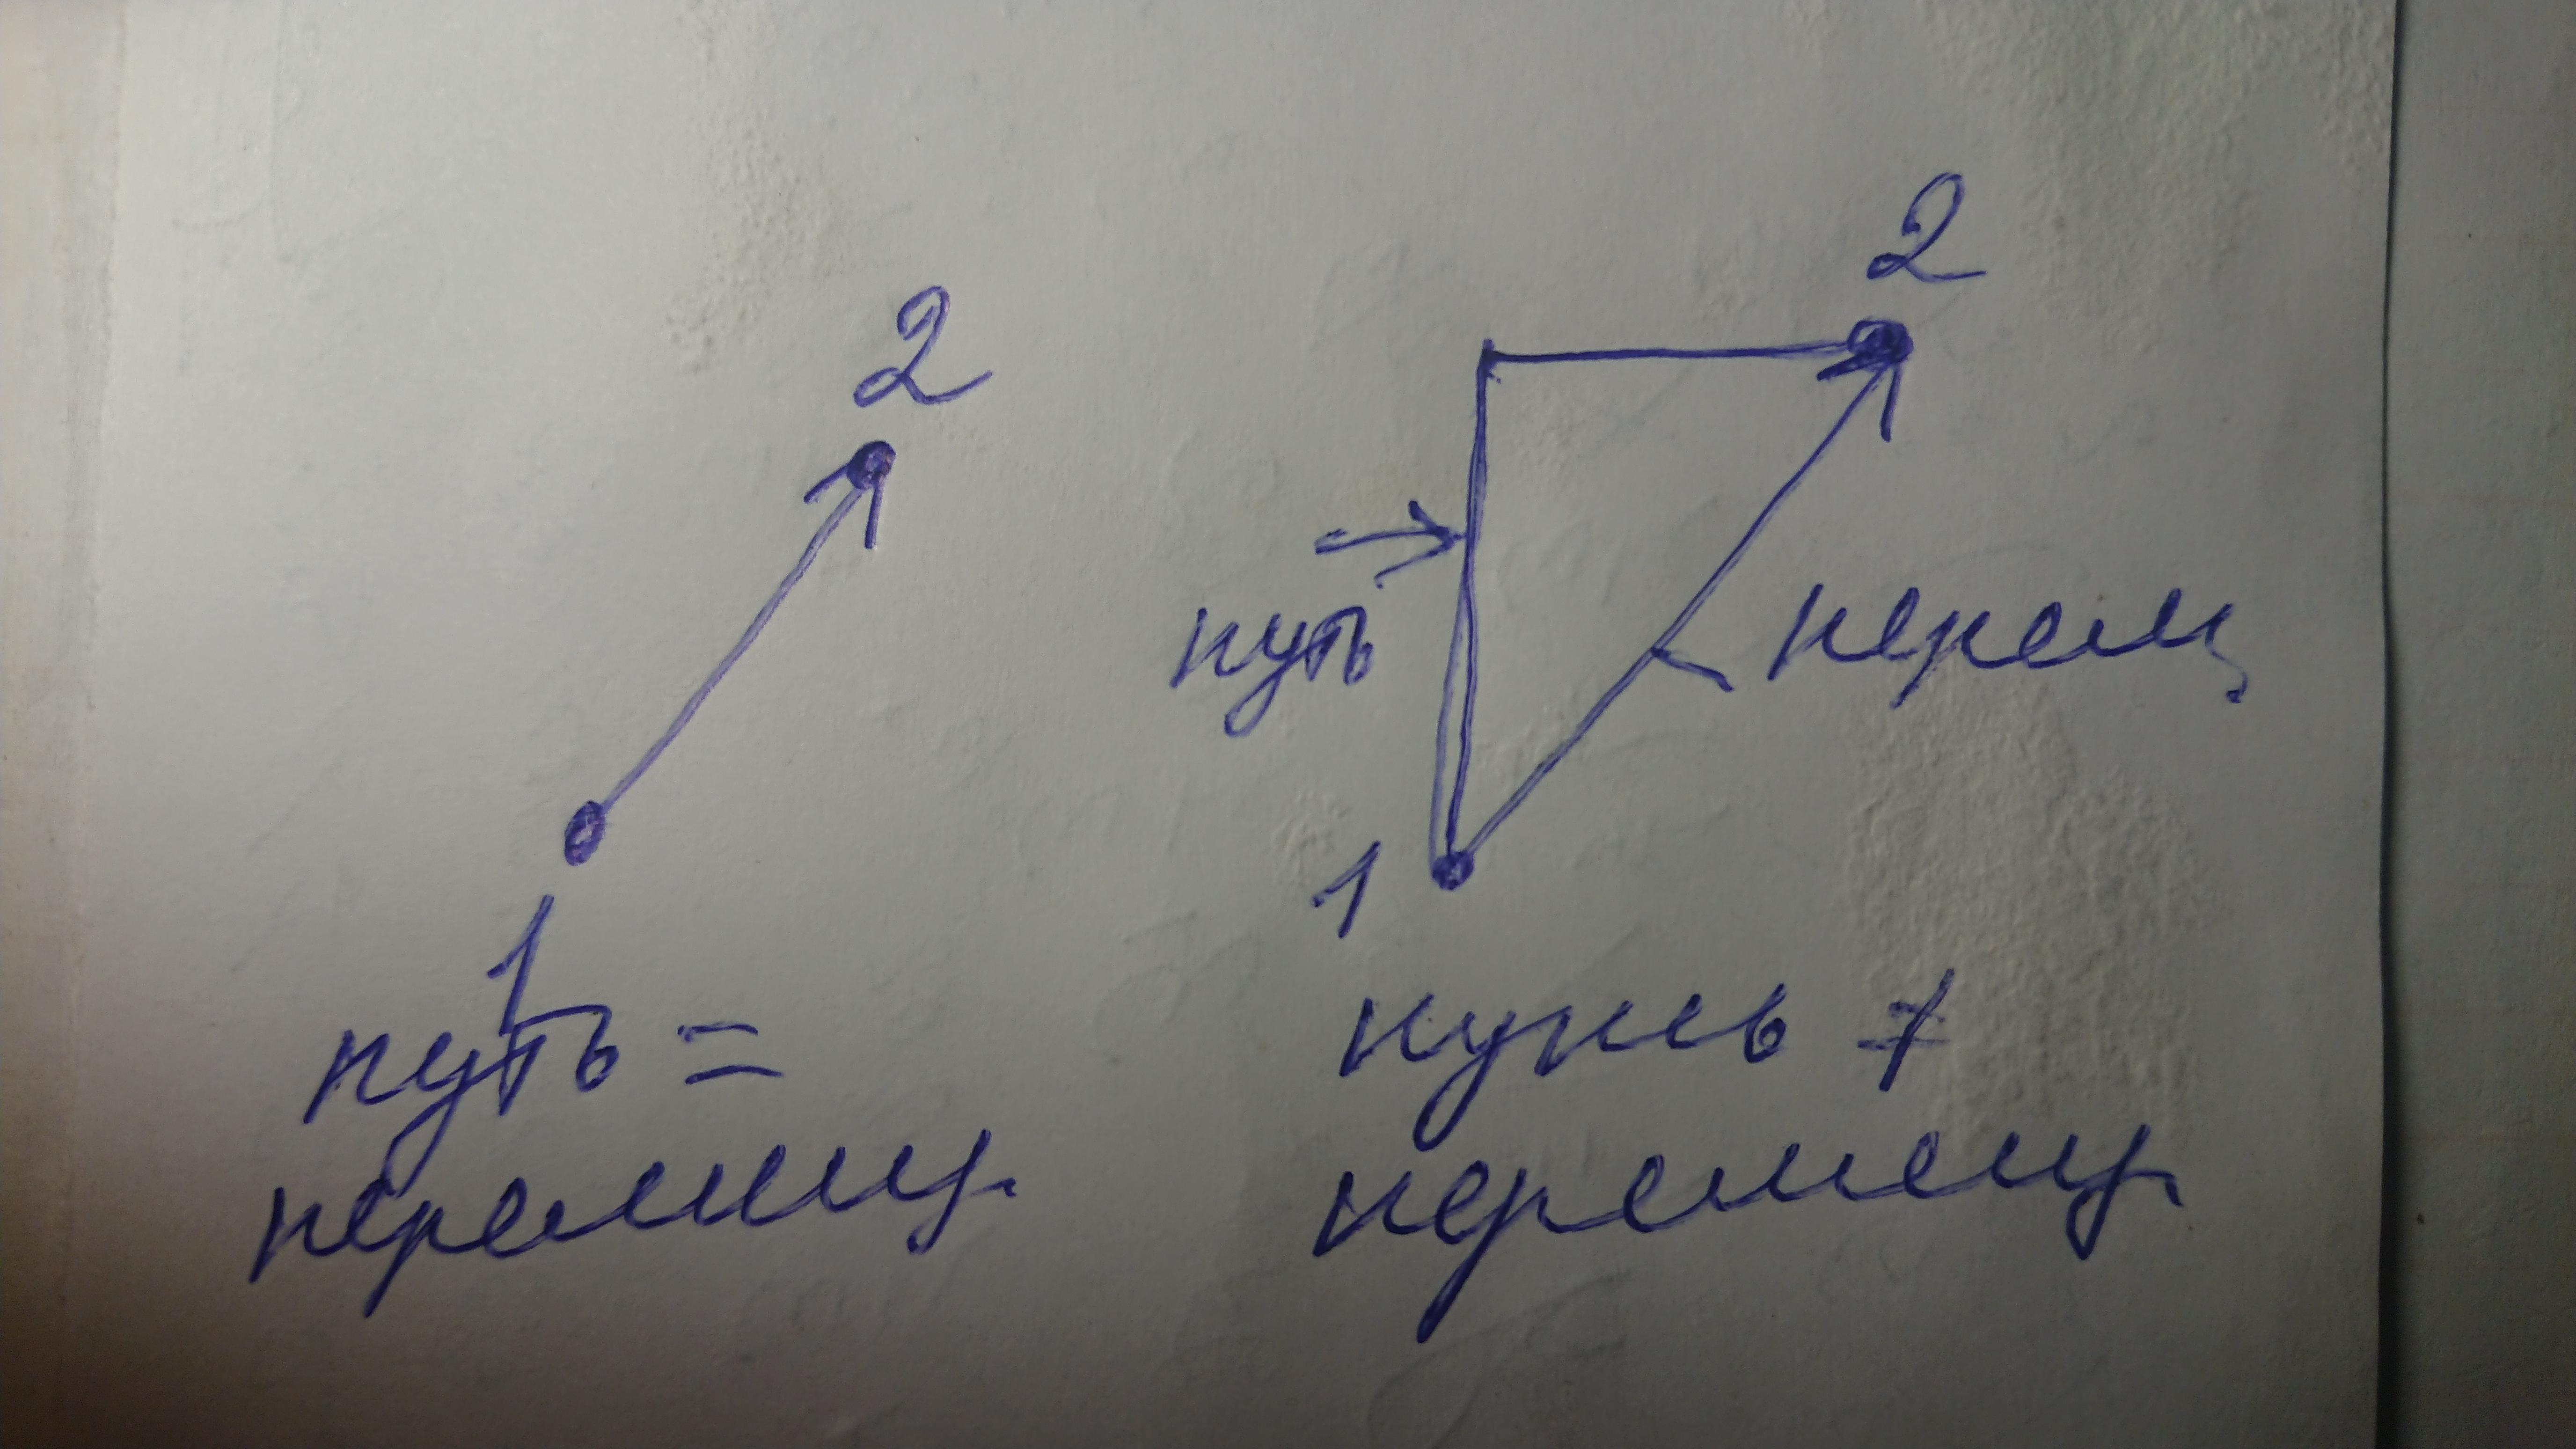 2
1
путь =
перемещ.
2
путь
перемщ
1
путь ≠
перемещ.